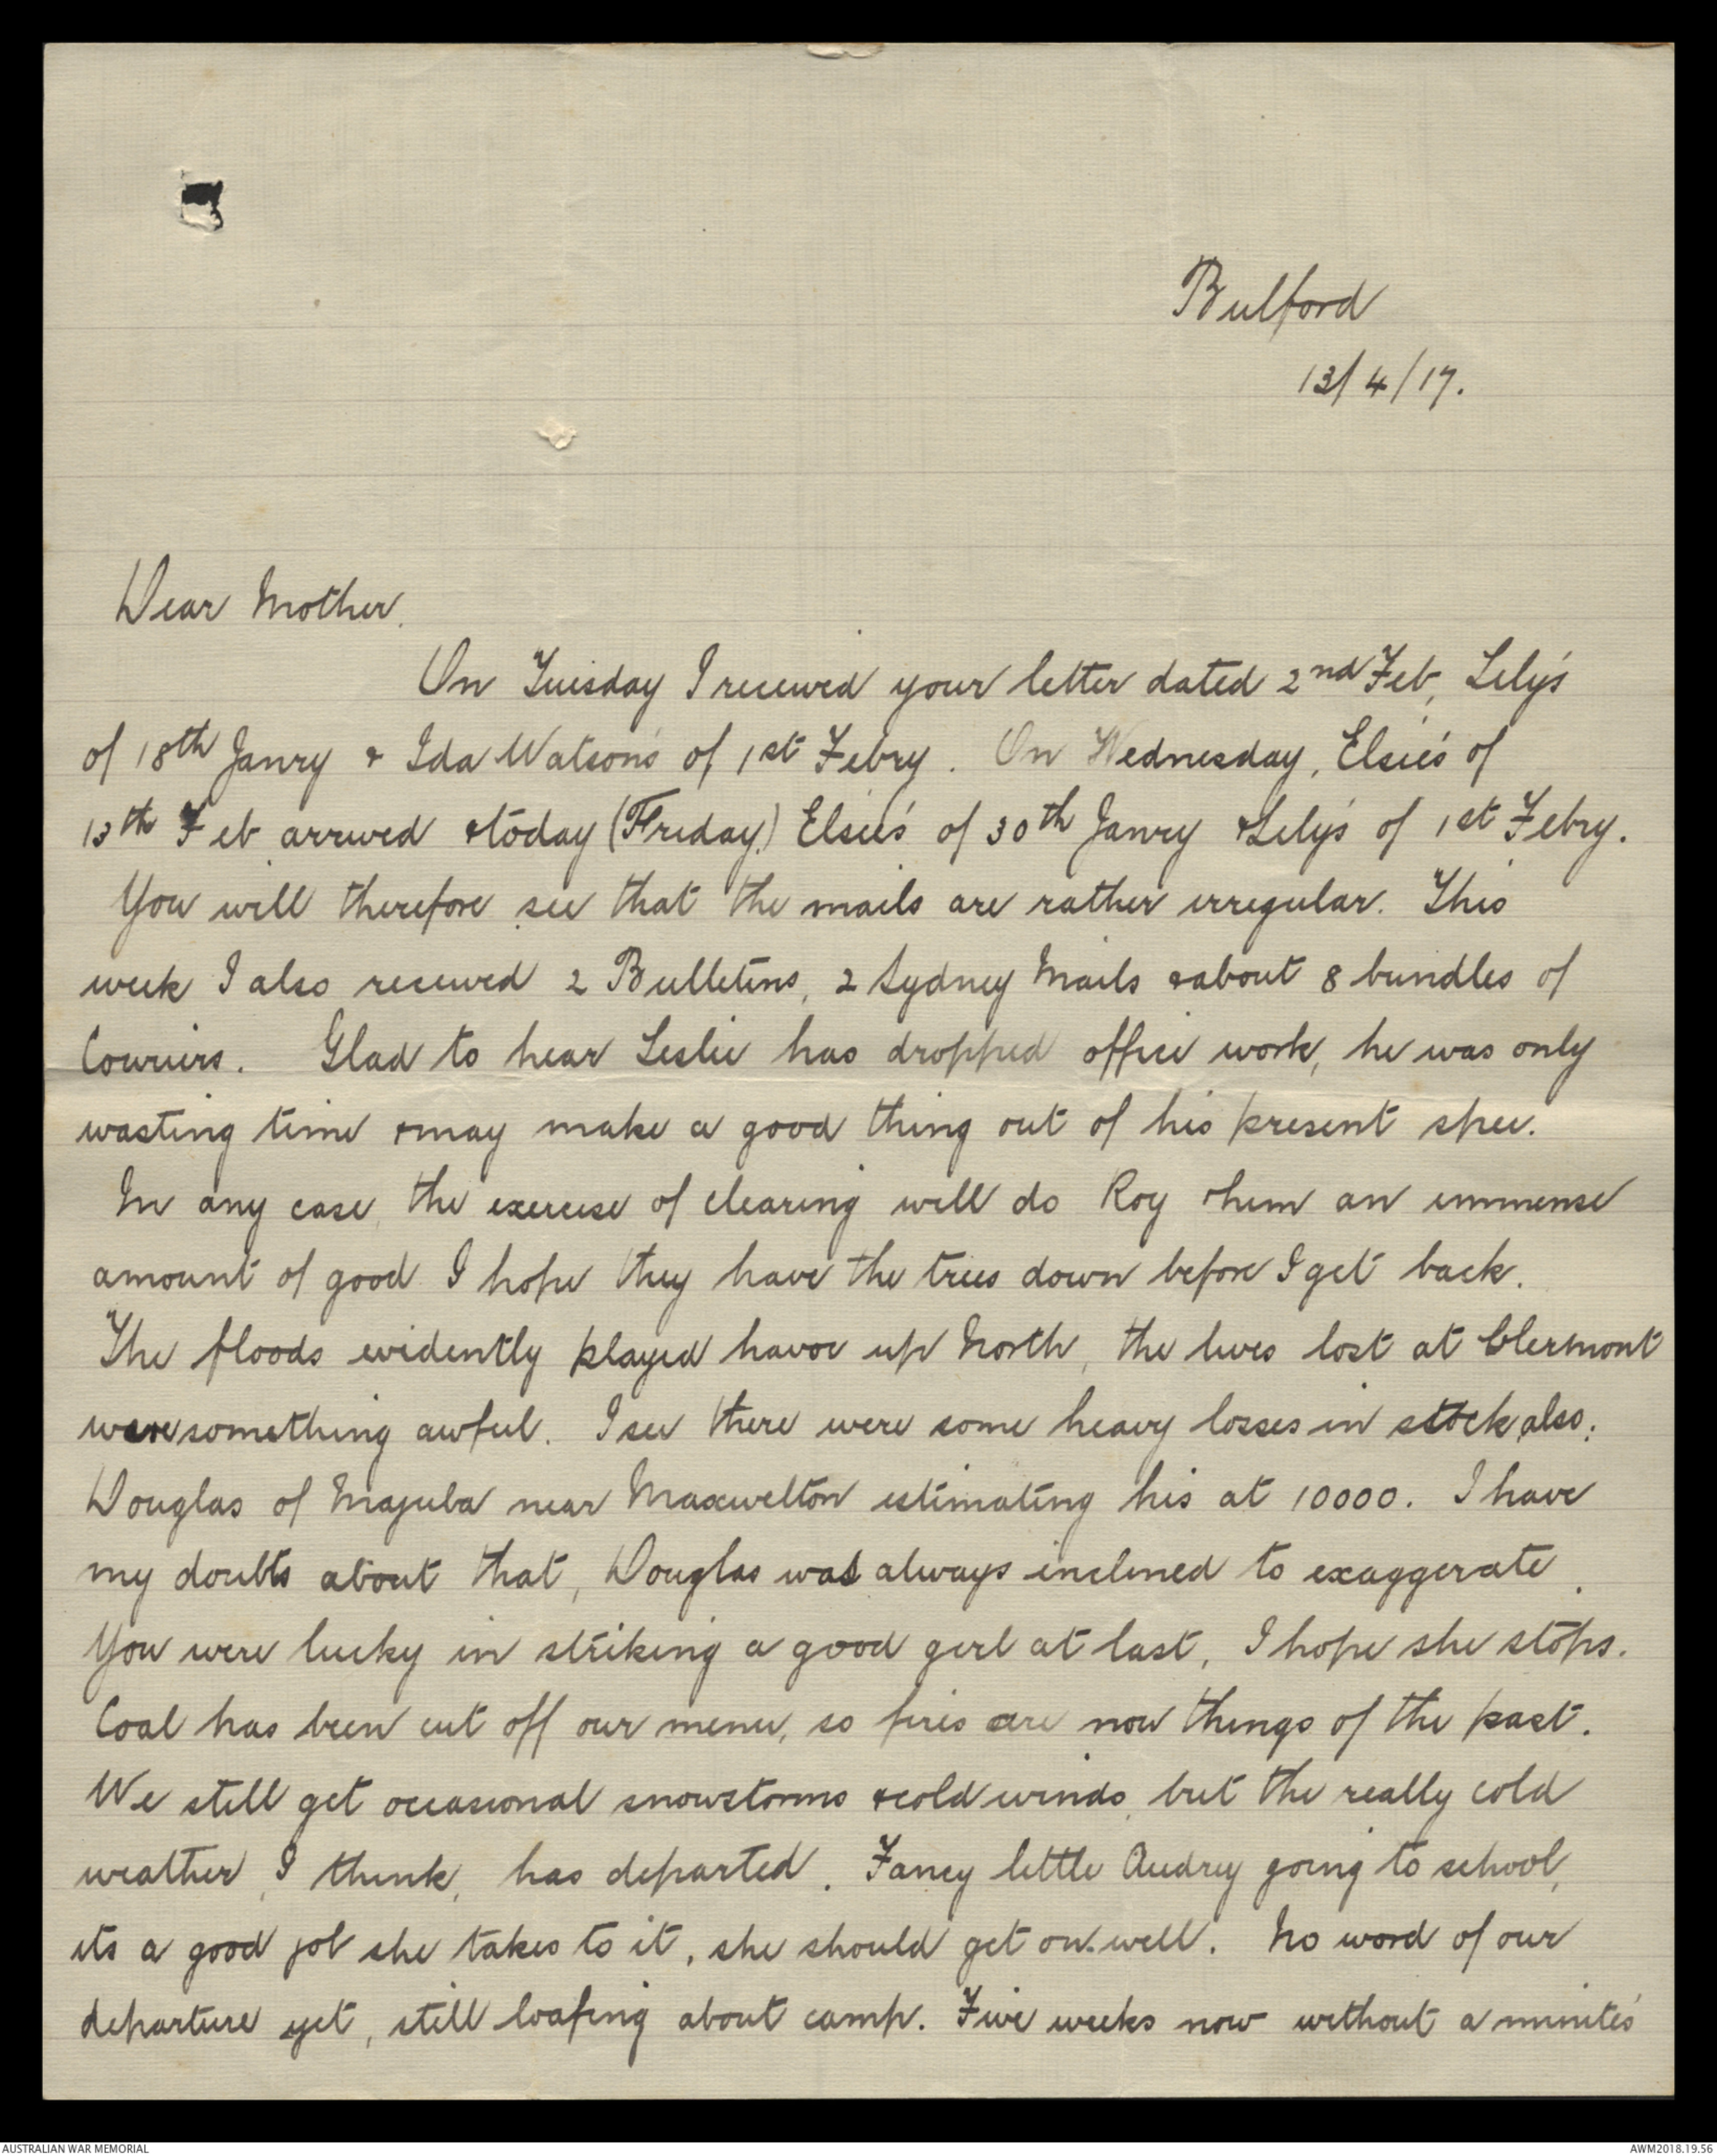 Bulford
13/4/17.
Dear Mother.
On Tuesday I received your letter dated 2nd Feb, Lily's
of 18th Janry & Ida Watson's of 1st Febry. On Wednesday, Elsie's of
13th Feb arrived & today (Friday) Elsie's of 30th Janry & Lily's of 1st Febry.
You will therefore see that the mails are rather irregular. This
week I also received 2 Bulletins, 2 Sydney Mails & about 8 bundles of
Couriers. Glad to hear Leslie has dropped office work, he was only
wasting time & may make a good thing out of his present spec.
In any case, the exercise of clearing will do Roy & him an immense
amount of good. I hope they have the trees down before I get back.
The floods evidently played havoc up North, the lives lost at Clermont
were something awful. I see there were some heavy losses in stock also;
Douglas of Majuba near Maxwelton estimating his at 10000. I have
my doubts about that, Douglas was always inclined to exaggerate.
You were lucky in striking a good girl at last, I hope she stops.
Coal has been cut off our menu, so fires are now things of the past.
We still get occasional snowstorms & cold winds, but the really cold
weather, I think, has departed. Fancy little Audrey going to school,
its a good job she takes to it, she should get on well. No word of our
departure yet, still loafing about camp. Five weeks now without a minute's
AUSTRALIAN WAR MEMORIAL
AWM2018.19.56